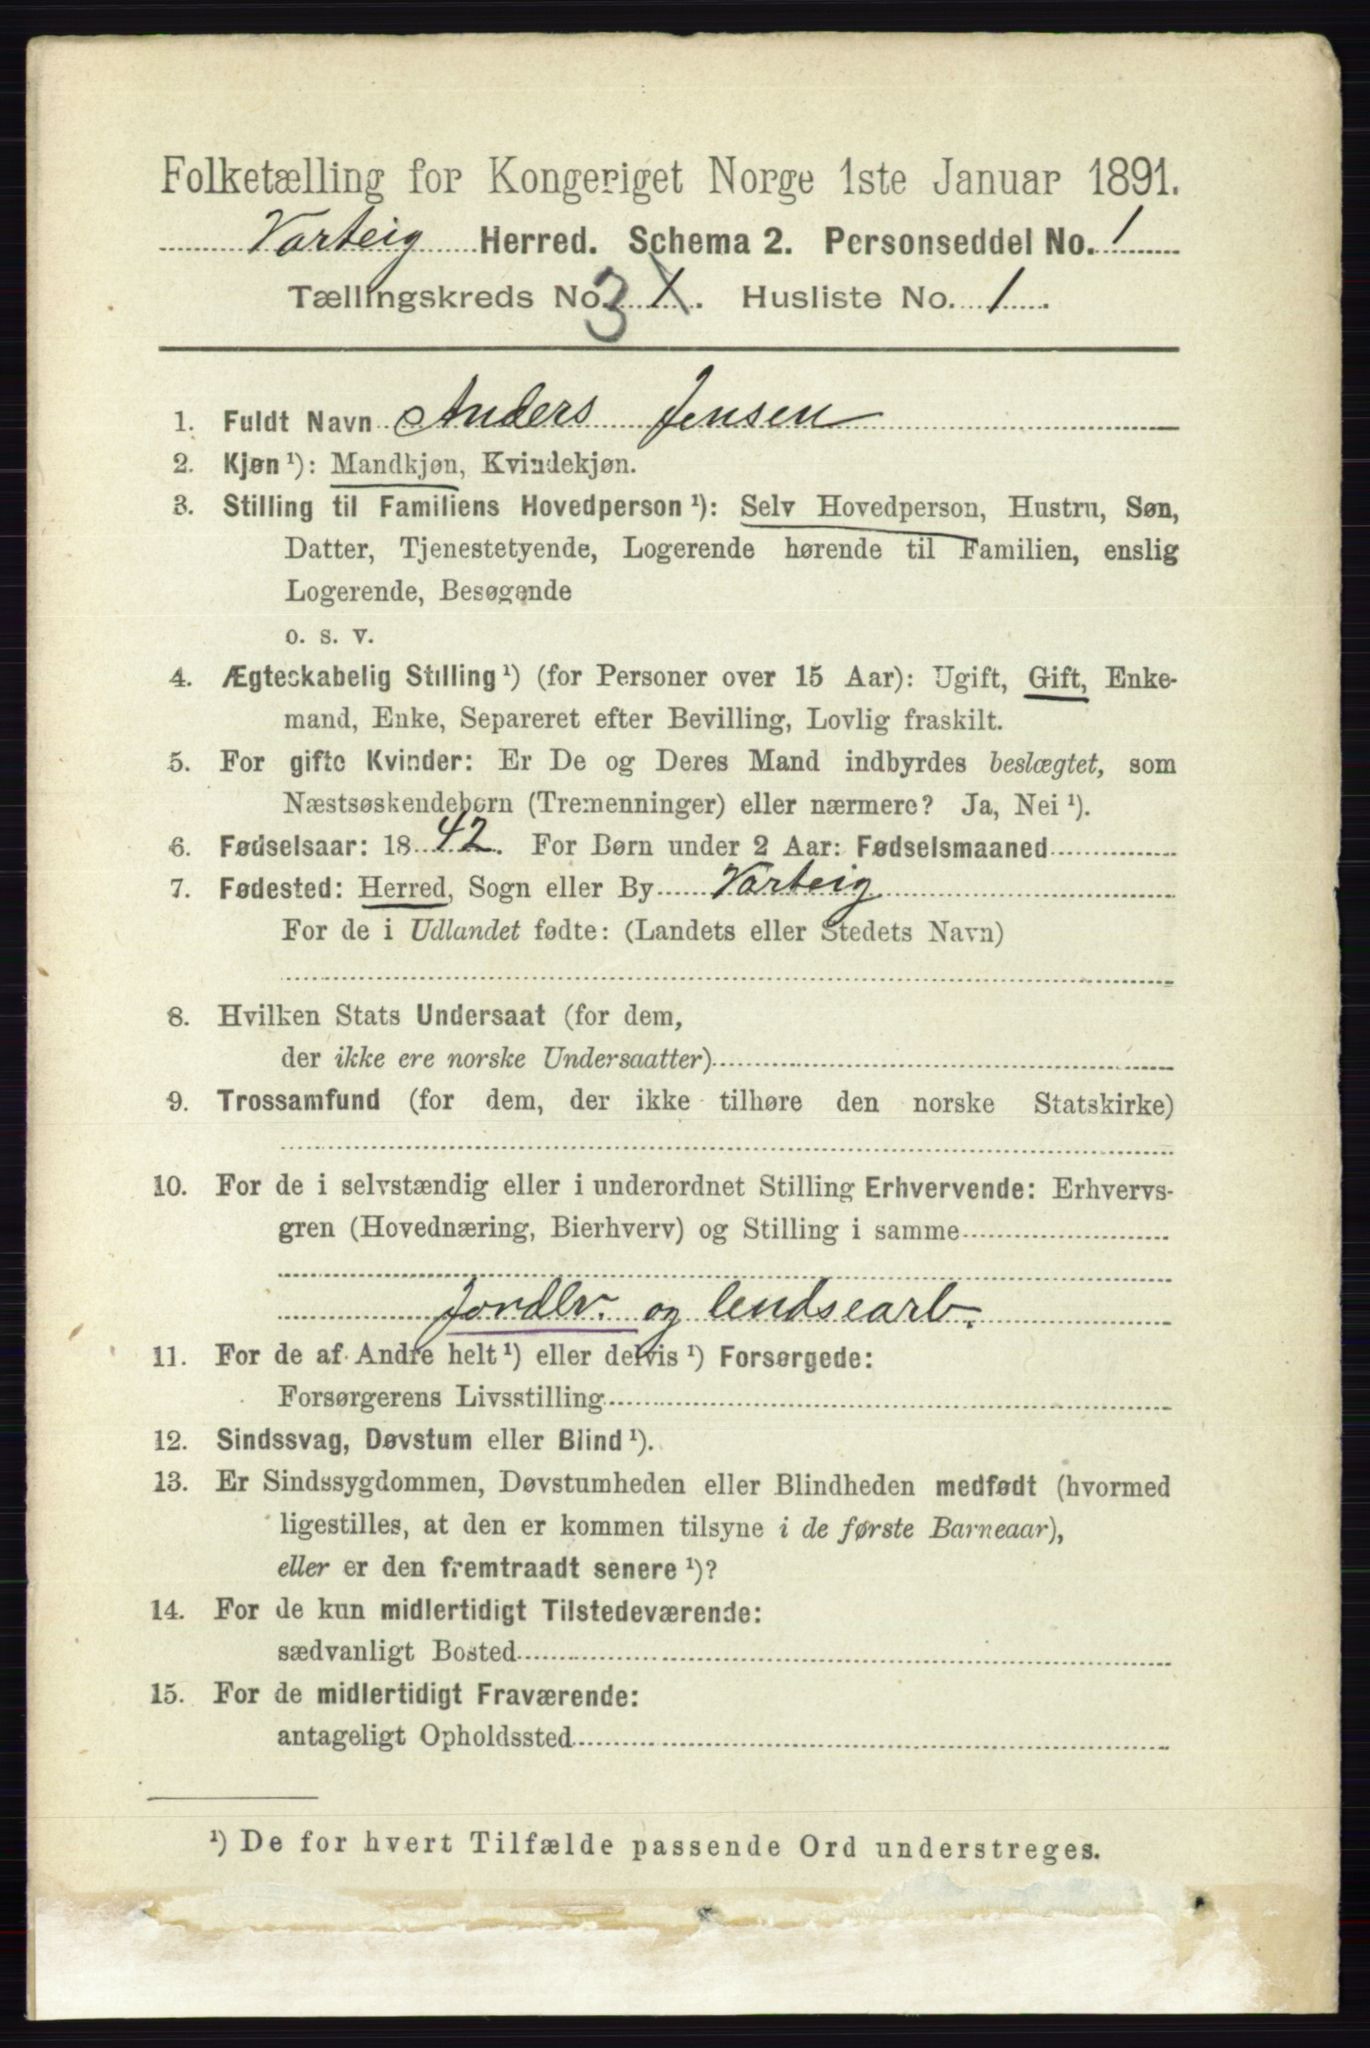 Folketælling for Kongeriget Norge 1ste Januar 1891.
Varteig Herred. Schema 2. Personseddel No. 1
Tællingskreds No. 3 1. Husliste No. 1.
1. Fuldt Navn Anders Jensen
2. Kjøn¹): Mandkjøn, Kvindekjøn.
3. Stilling til Familiens Hovedperson¹): Selv Hovedperson, Hustru, Søn,
Datter, Tjenestetyende, Logerende hørende til Familien, enslig
Logerende, Besøgende
o. s. v.
4. Ægteskabelig Stilling¹) (for Personer over 15 Aar): Ugift, Gift, Enke-
mand, Enke, Separeret efter Bevilling, Lovlig fraskilt.
5. For gifte Kvinder: Er De og Deres Mand indbyrdes beslægtet, som
Næstsøskendebørn (Tremenninger) eller nærmere? Ja, Nei¹).
6. Fødselsaar: 1842. For Børn under 2 Aar: Fødselsmaaned
7. Fødested: Herred, Sogn eller By Varteig
For de i Udlandet fødte: (Landets eller Stedets Navn)
8. Hvilken Stats Undersaat (for dem,
der ikke ere norske Undersaatter)
9. Trossamfund (for dem, der ikke tilhøre den norske Statskirke)
10. For de i selvstændig eller i underordnet Stilling Erhvervende: Erhvervs-
gren (Hovednæring, Bierhverv) og Stilling i samme
Jordbr. og lendsearb.
11. For de af Andre helt¹) eller delvis¹) Forsørgede:
Forsørgerens Livsstilling
12. Sindssvag, Døvstum eller Blind¹).
13. Er Sindssygdommen, Døvstumheden eller Blindheden medfødt (hvormed
ligestilles, at den er kommen tilsyne i de første Barneaar),
eller er den fremtraadt senere¹)?
14. For de kun midlertidigt Tilstedeværende:
sædvanligt Bosted
15. For de midlertidigt Fraværende:
antageligt Opholdssted
¹) De for hvert Tilfælde passende Ord understreges.